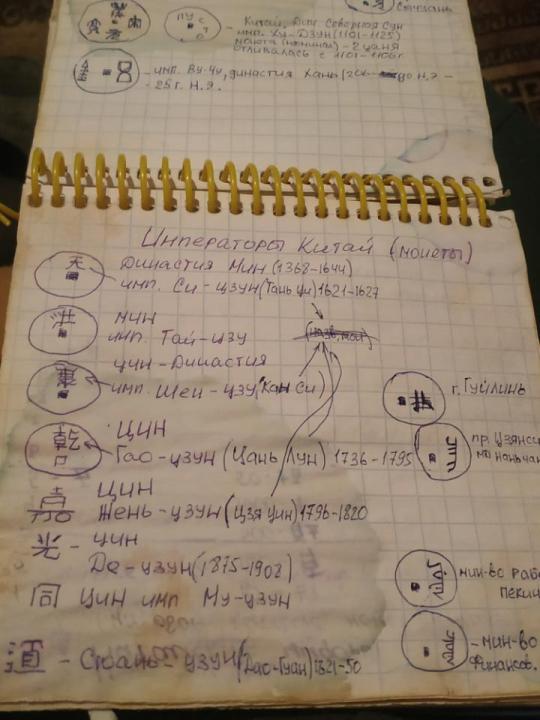 Сычуань
пу с т о - Китай, дин. Северная Сун
имп. Ху-Дзун (1101-1125)
монета (номинал) - 2 цаня
отливалась с 1101-1106г
- имп. Ву-Чу, династия Хань (206 до н.э -
- 25 г. н.э.
Императоры Китай (монеты)
天 Династия Мин (1368-1644)
имп. Си-цзун (Тань Ци) 1621-1627
洪 Мин
имп. Тай-цзу
Цин-Династия
имп. Шен-цзу "Кан Си)
г. Гуйлинь
乾 Цин
Гао-цзун (Цань Лун) 1736-1795
пр. Цзянси
Цин
Жень-цзун (Цзя Цин) 1796-1820
光 - Цин
Де-цзун (1875-1902)
мин-во раб
пекин
同 Цин имп Му-цзун
- мин-во
финансов.
道 - Сюань-цзун (Дао-Гуан) 1821-50